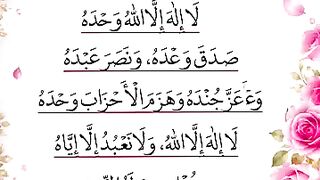 لَا إِلٰهَ إِلَّا اللهُ وَحْدَهُ
صَدَقَ وَعْدَهُ، وَنَصَرَ عَبْدَهُ
وَءَعَزَّ جُنْدَهُ وَهَزَمَ الْأَحْزَابَ وَحْدَهُ
لَا إِلٰهَ إِلَّا اللهُ، وَلَا نَعْبُدُ إِلَّا إِيَّاهُ